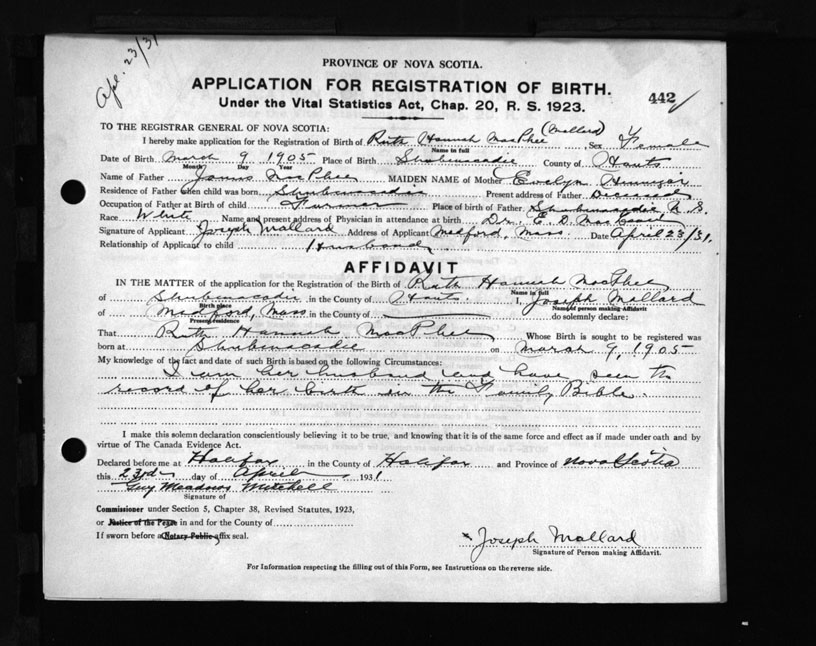 Apl. 23/31
PROVINCE OF NOVA SCOTIA.
APPLICATION FOR REGISTRATION OF BIRTH.
442
Under the Vital Statistics Act, Chap. 20, R. S. 1923.
TO THE REGISTRAR GENERAL OF NOVA SCOTIA:
(Mallard)
I hereby make application for the Registration of Birth of Ruth Hannah MacPhee Sex Female
Name in full
Date of Birth March 9 1905 Place of Birth Shubenacadie County of Hants
Month Day Year
Name of Father James MacPhee MAIDEN NAME of Mother Evelyn
Residence of Father when child was born Shubenacadie Present address of Father Deceased
Occupation of Father at Birth of child Farmer Place of birth of Father Shubenacadie N.S.
Race White Name and present address of Physician in attendance at birth Dr. E. D.
Signature of Applicant Joseph Mallard Address of Applicant Medford, Mass. Date April 23/31.
Relationship of Applicant to child Husband
AFFIDAVIT
IN THE MATTER of the application for the Registration of the Birth of Ruth Hannah MacPhee
Name in full
of Shubenacadie in the County of Hants. I, Joseph Mallard
Birth place Name of person making Affidavit
of Medford, Mass in the County of do solemnly declare:
Present residence
That Ruth Hannah MacPhee Whose Birth is sought to be registered was
born at Shubenacadie on March 9, 1905
My knowledge of the fact and date of such Birth is based on the following Circumstances:
I am her husband and have seen the
record of her birth in the Family Bible.
I make this solemn declaration conscientiously believing it to be true, and knowing that it is of the same force and effect as if made under oath and by
virtue of The Canada Evidence Act.
Declared before me at Halifax in the County of Halifax and Province of Nova Scotia
this 23rd day of April 1931
Guy Meadows Mitchell
Signature of
Commissioner under Section 5, Chapter 38, Revised Statutes, 1923,
or Justice of the Peace in and for the County of
If sworn before a Notary Public, affix seal.
Joseph Mallard
Signature of Person making Affidavit.
For Information respecting the filling out of this Form, see Instructions on the reverse side.